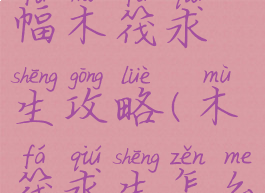 幅木筏求
shēng gōng lüè mù
生攻略(木
fá qiú shēng zěn me
筏求生怎么